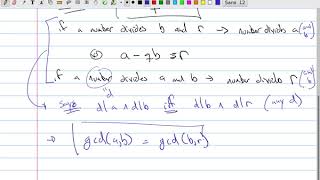 if a number divides b and r → number divides a (and b)
a - qb = r
if a number divides a and b → number divides r (and b)
Says d|a ∧ d|b iff d|b ∧ d|r (any d)
"d"
→ gcd(a,b) = gcd(b,r)